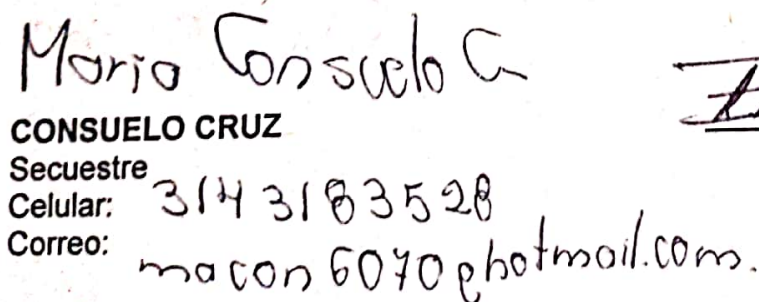 Maria Consuelo C
CONSUELO CRUZ
Secuestre
Celular: 3143183528
Correo: macon6070@hotmail.com.